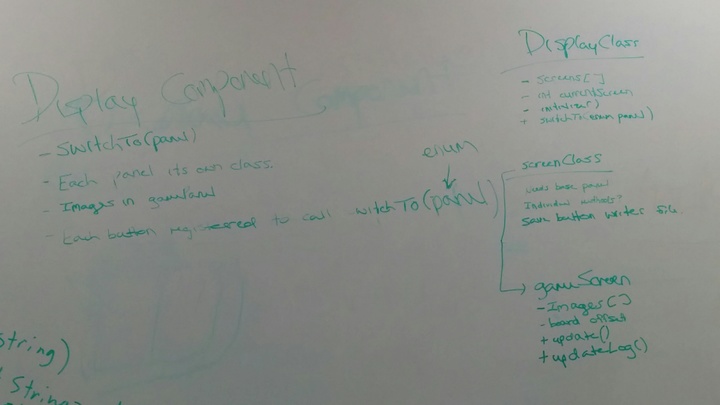 Display Component
- switchTo(panel)
- Each panel its own class.
- Images in gamePanel
- Each button registered to call switchTo(panel)
enum
DisplayClass
- screens[]
- int currentScreen
- initialize()
+ switchTo(enum panel)
screenClass
base panel
Individual
Save button writer file.
gameScreen
- Images[]
- board offset
+ update()
+ updateLog()
string)
String